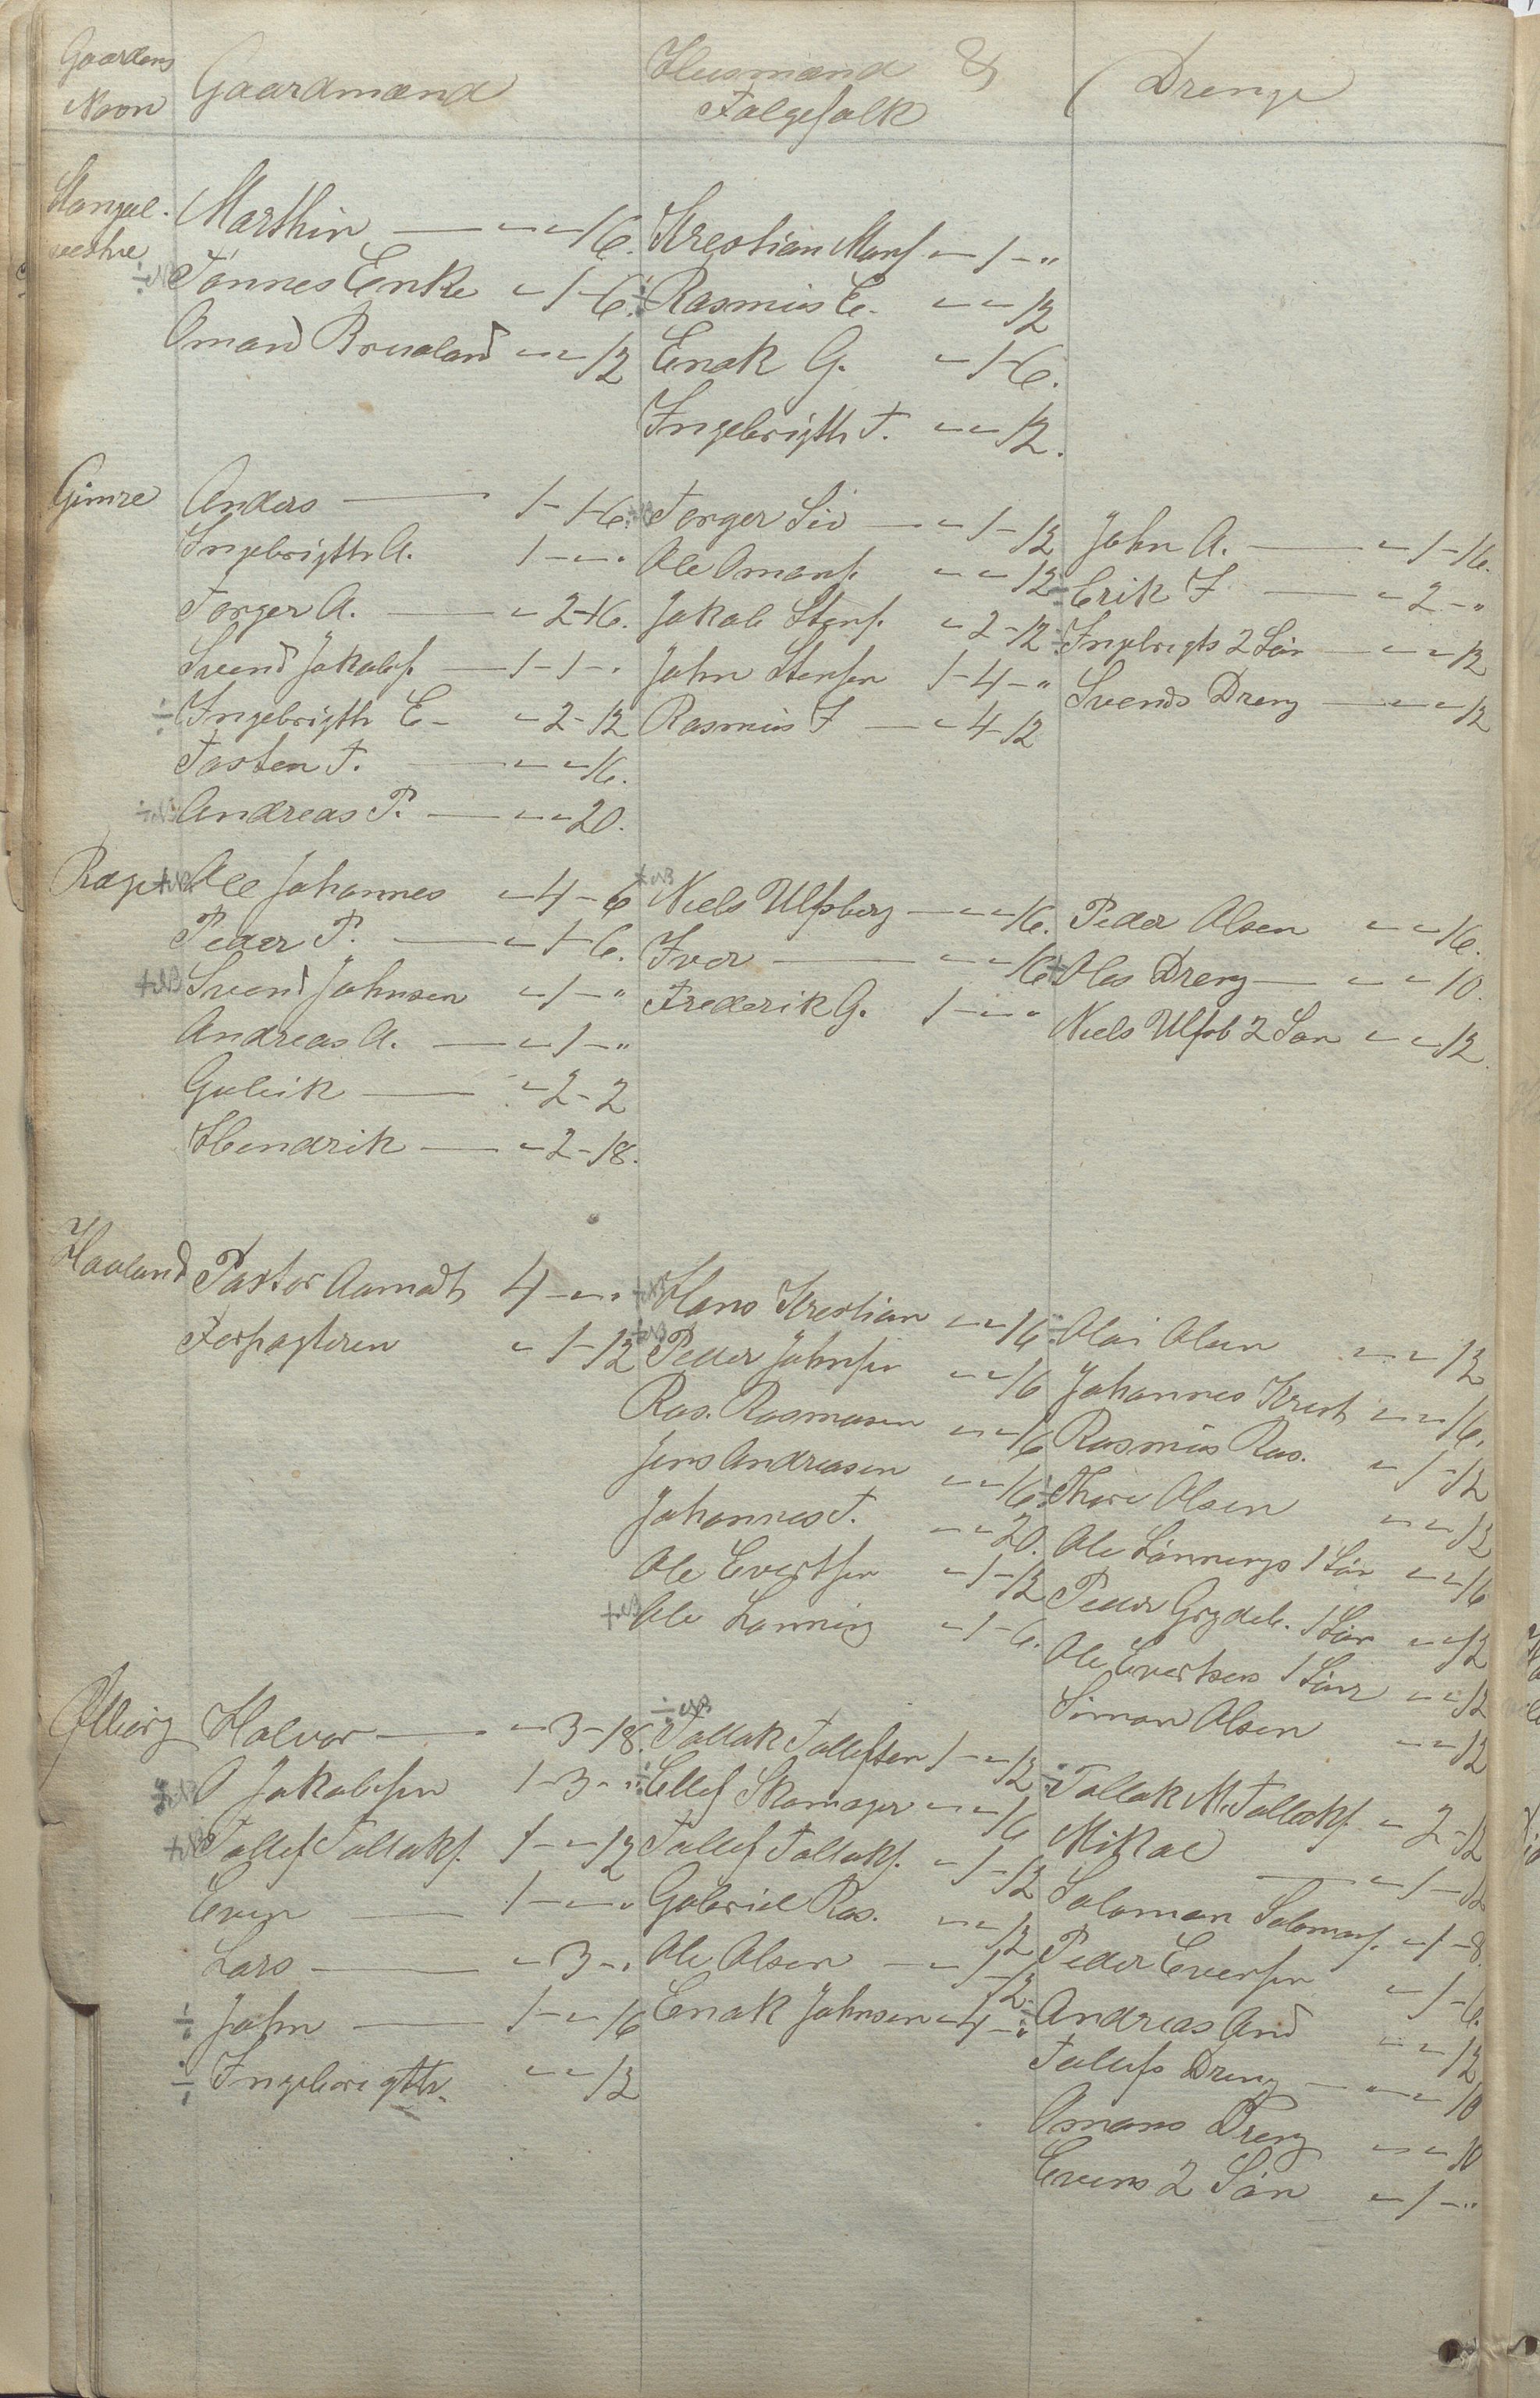 Gaardens Navn
Gaardmænd
Husmænd &
Følgefolk
Drenge
Mangel-
vestre
Marthin — " - " - 16.
÷ Tønnes Enke " - 1 - 6.
Omand Brualand " - " - 12
Krestian Mons. " - 1 - "
÷ Rasmus E. " - " - 12
Enok G. " - 1 - 6.
Ingebrigth T. " - " - 12.
Gimre
Anders — 1 - 1 - 6.
Ingebrigth A. 1 - " - "
Torger A. — " - 2 - 16.
Svend Jakobs. — 1 - 1 - "
÷ Ingebrigth E. " - 2 - 12
Tosten T. — " - " - 16.
÷ Andreas P. — " - " - 20.
Torger Siv — " - 1 - 12
Ole Omans. " - " - 12
Jakob Stens. " - 2 - 12
John Stensen 1 - 4 - "
Rasmus I — " - 4 - 12
John A. — " - 1 - 16.
÷ Erik I — " - 2 - "
÷ Ingebrigts 2 Søn — " - " - 12
Svends Dreng — " - " - 12
Ræge
Ole Johannes " - 4 - 6
Peder P. — " - 1 - 6.
Svend Johnsen " - 1 - "
Andreas A. — " - 1 - "
Guleik — " - 2 - 2
Hendrik — " - 2 - 18.
Niels Ulfsberg — " - " - 16.
Iver — " - " - 16
Frederik G. 1 - " - "
Peder Olsen " - " - 16.
Oles Dreng — " - " - 10.
Niels Ulfsb 2 Søn " - " - 12.
Haaland
Pastor Aamodt 4 - " - "
Forpagteren " - 1 - 12
Hans Krestian " - " - 16
Peder Johnsen " - " - 16
Ras. Rasmusen " - " - 16
Jens Andreasen " - " - 16
Johannes T. " - " - 20.
Ole Evertsen " - 1 - 12
Ole Lønning " - 1 - 6.
÷ Olai Olsen " - " - 12
Johannes Krest " - " - 16.
Rasmus Ras. " - 1 - 12
÷ Thore Olsen " - " - 12
Ole Lønnings 1 Søn " - " - 16
Peder Grydeb. 1 Søn " - " - 12
Ole Evertsens 1 Søn " - " - 12
Simon Olsen " - " - 12
Ølberg
Halvor — " - 3 - 18.
O Jakobsen 1 - 3 - "
Tollef Tollaks. 1 - " - 12
Even — 1 - " - "
Lars — " - 3 - "
÷ John — 1 - " - 16
÷ Ingebrigth. " - " - 12
Tollak Tollefsen 1 - " - 12
÷ Ellef Skomager " - " - 16
Tollef Tollaks. " - 1 - 12
Gabriel Ras. " - " - 12
Ole Olsen — " - 1 - 12
Enok Johnsen " - 4 - "
÷ Tollak M. Tollaks. " - 2 - 12
Mikal — " - 1 - 12
Salomon Salomons. " - 1 - 8.
Peder Evensen " - 1 - 6.
÷ Andreas And " - " - 12
Tollefs Dreng — " - " - 10
Omans Dreng " - " - 10
Evens 2 Søn " - 1 - "